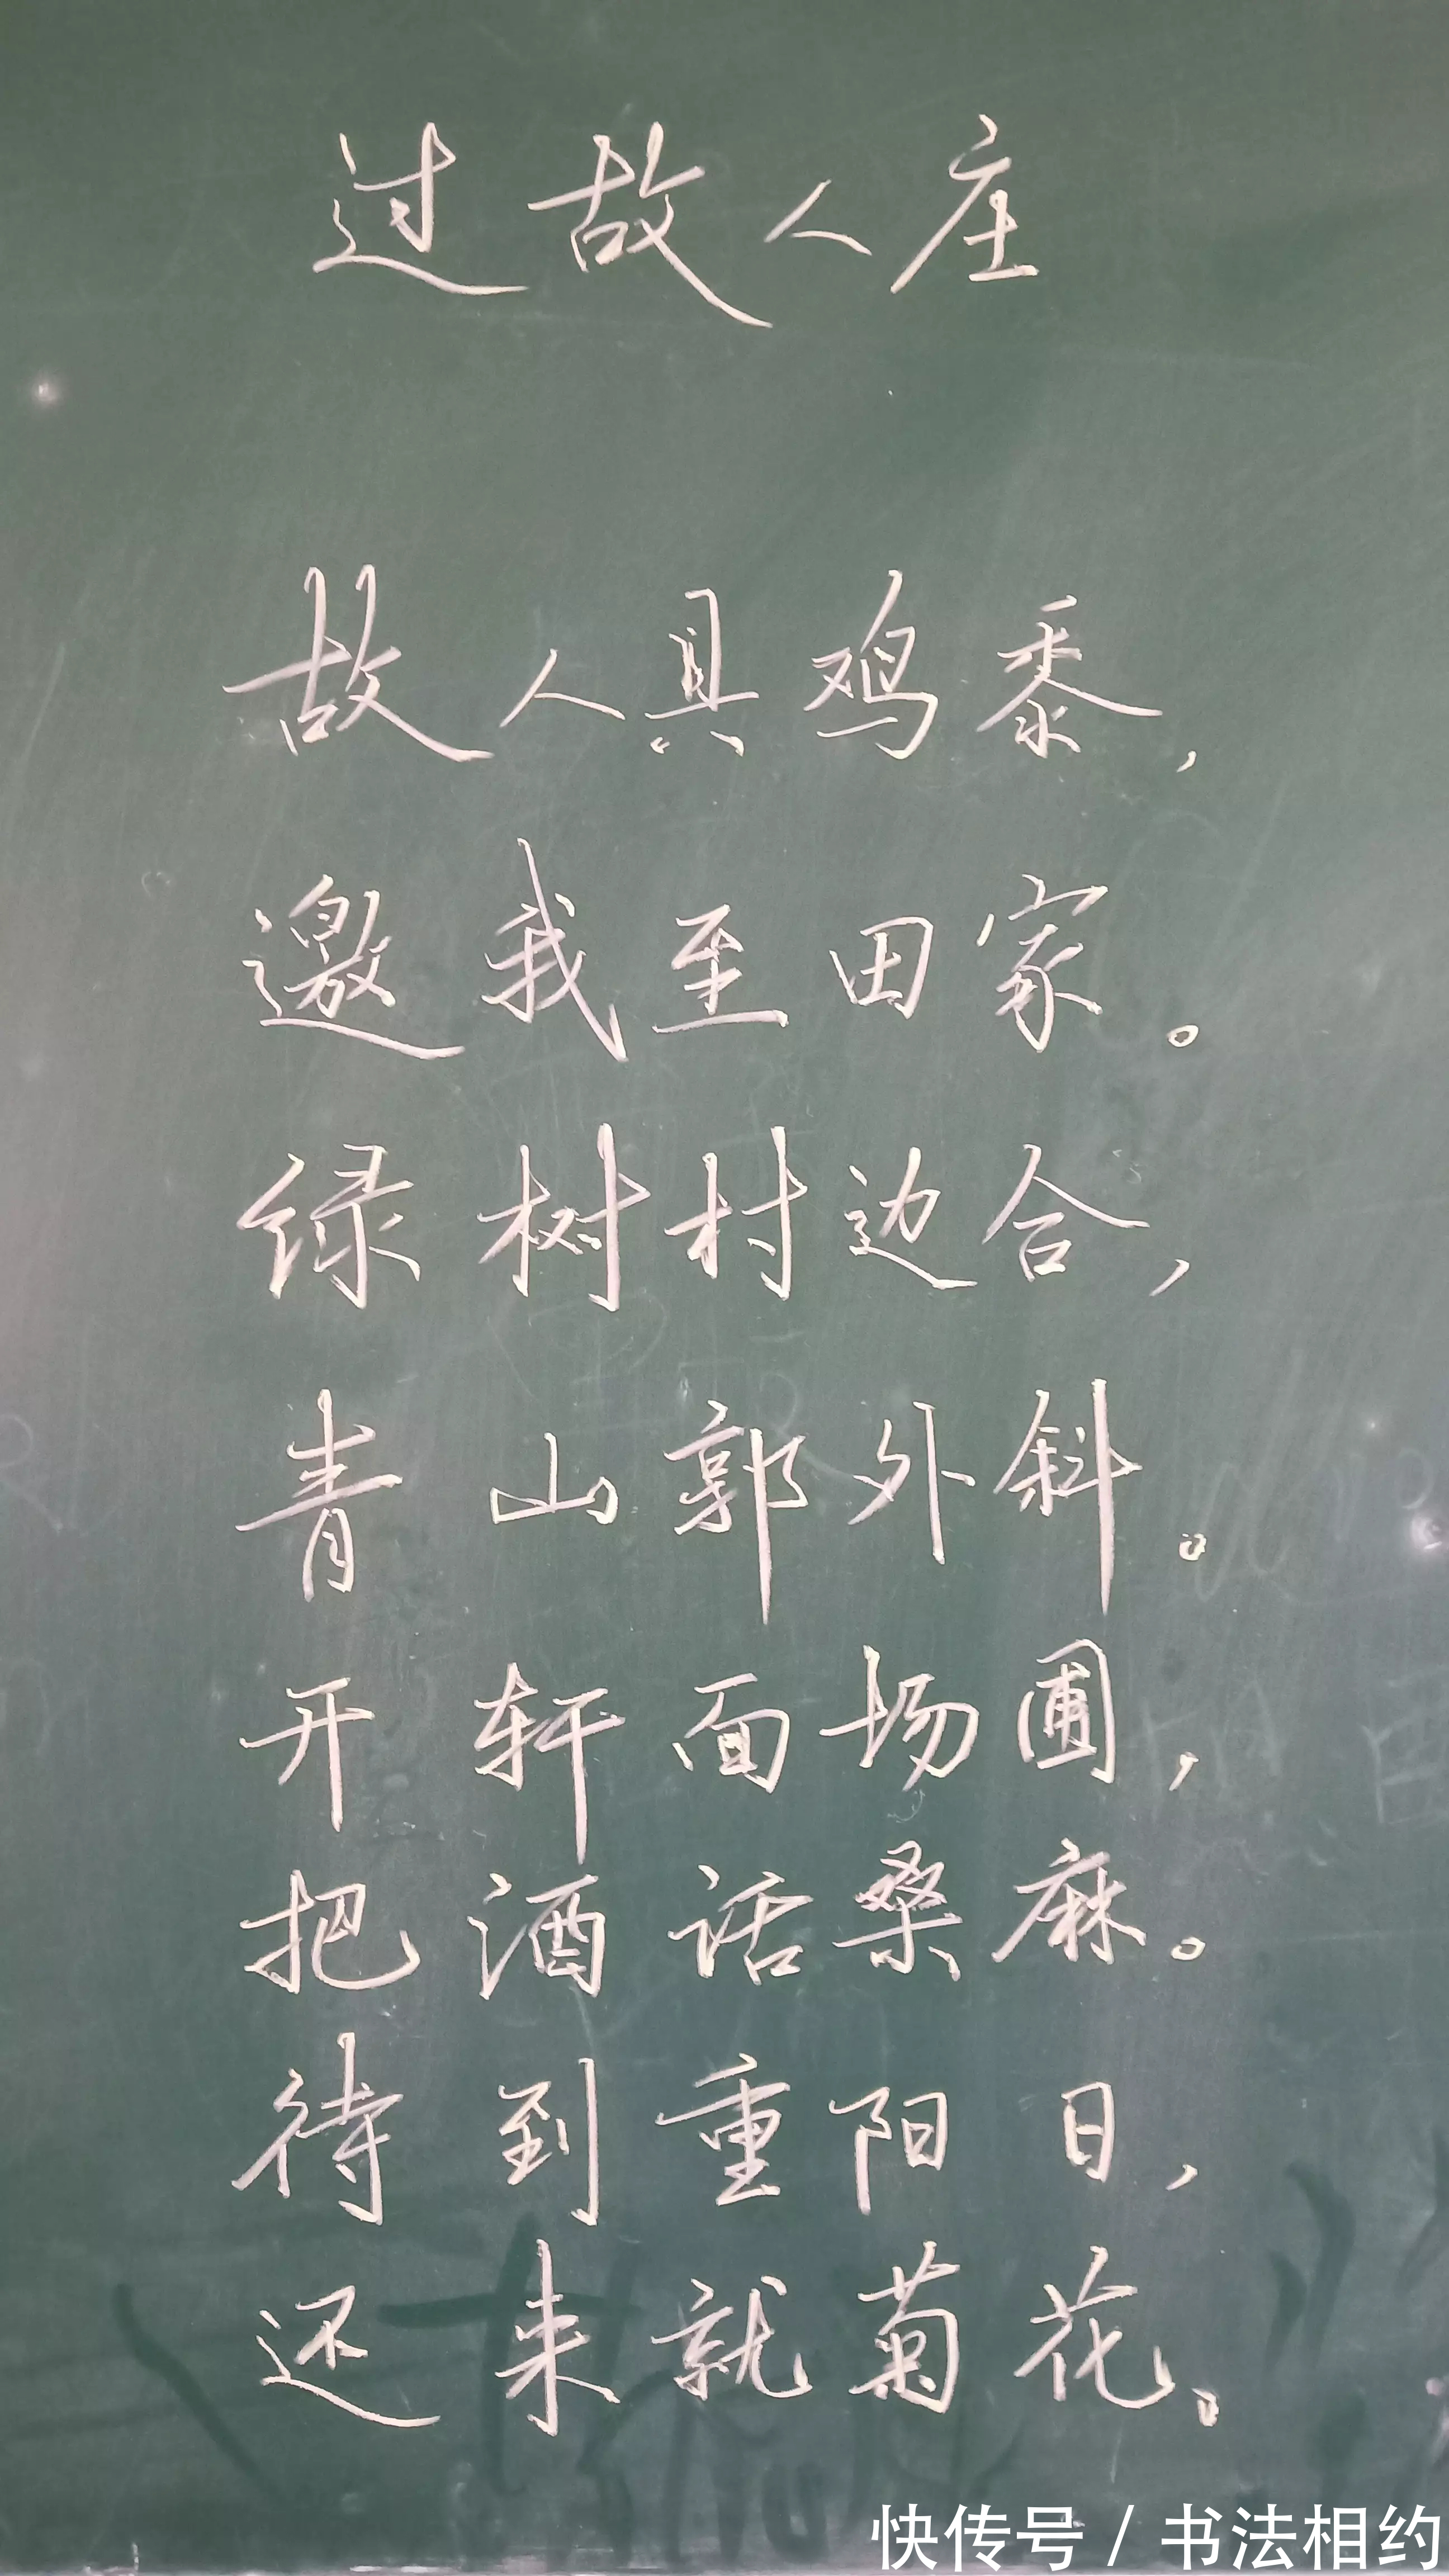 过故人庄
故人具鸡黍,
邀我至田家。
绿树村边合,
青山郭外斜。
开轩面场圃,
把酒话桑麻。
待到重阳日,
还来就菊花。
快传号/书法相约